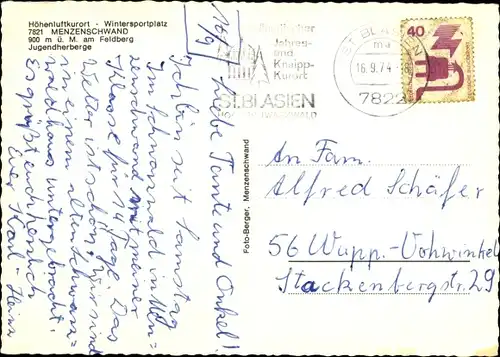 Höhenluftkurort - Wintersportplatz
7821 MENZENSCHWAND
900 m ü. M. am Feldberg
Jugendherberge
16/9
Liebe Tante und Onkel!
Ich bin seit Samstag
im Schwarzwald in Men-
zenschwand mit meiner
Klasse für 14 Tage. Das
Wetter ist schön. Wir sind
in einem alten Schwarz-
waldhaus untergebracht.
Es grüßt euch herzlich
Euer Karl-Heinz
Foto-Berger, Menzenschwand
Jahres-
und
Kneipp-
Kurort
ST. BLASIEN
HOCHSCHWARZWALD
ST. BLASIEN
ma
16.9.74
7822
40
An Fam.
Alfred Schäfer
56 Wupp.-Vohwinkel
Stackenbergstr. 29